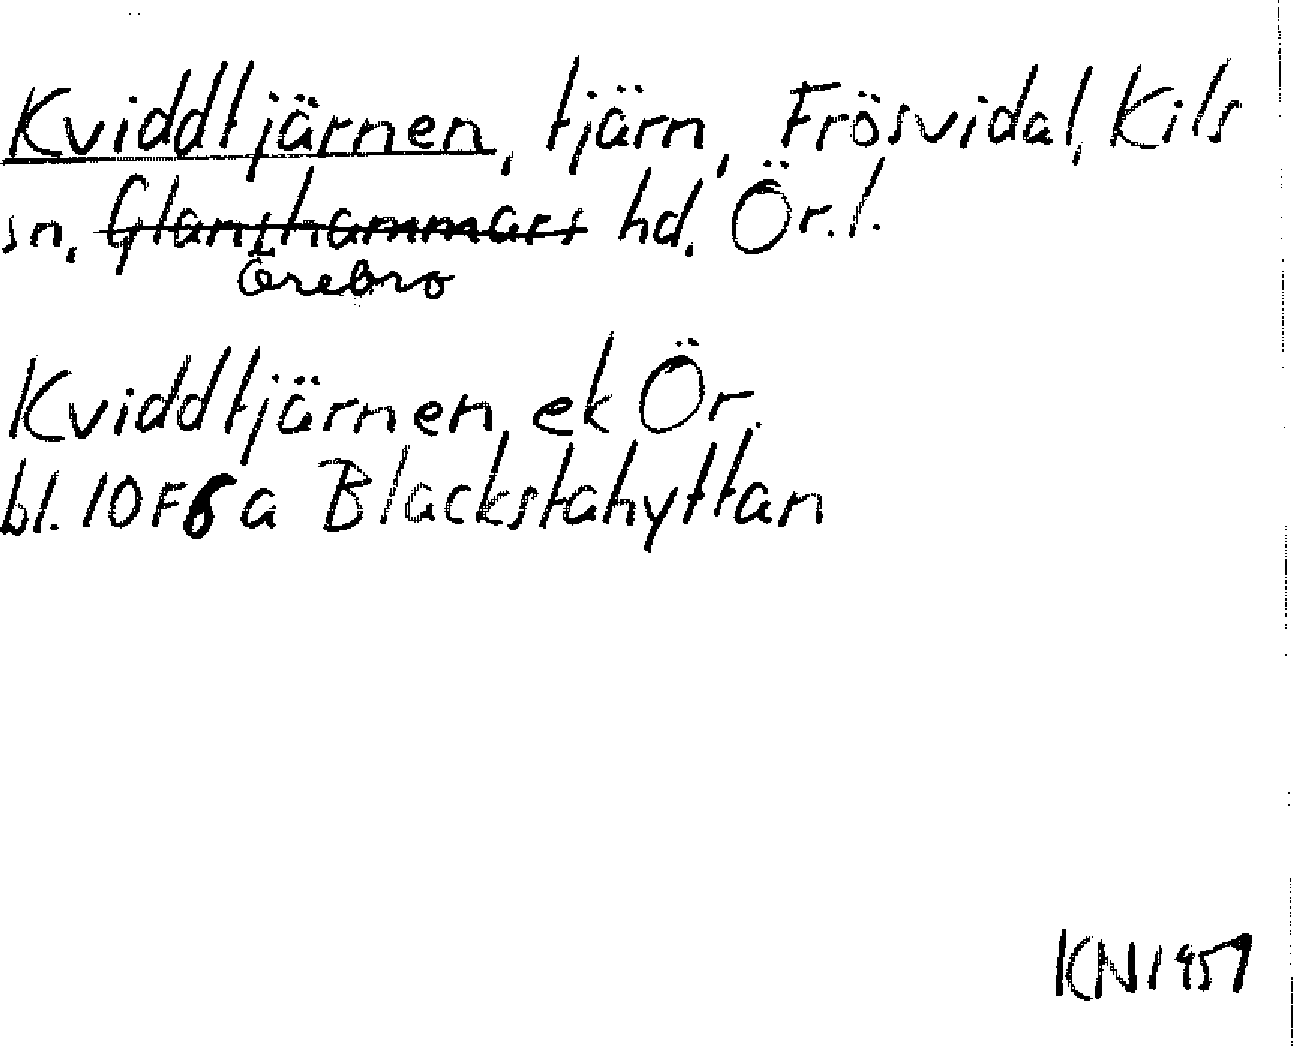 Kviddtjärnen, tjärn, Frösvidal, Kils
sn. Glanshammars hd. Ör. l.
Örebro
Kviddtjärnen, ek Ör.
bl. 10F6a Blackstahyttan
KN1957